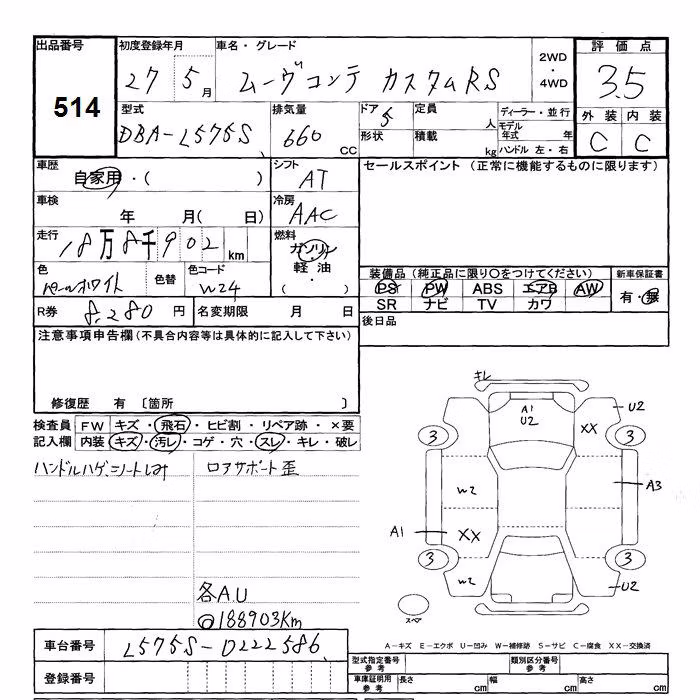 出品番号 初度登録年月 車名・グレード 2WD・4WD 評価点
514 27 5月 ムーヴコンテ カスタムRS 3.5
型式 排気量 ドア 定員 人 ディーラー・並行 外装 内装
DBA-L575S 660 CC 5 形状 積載 kg モデル年式 年 ハンドル 左・右 C C
車歴 自家用・( ) シフト AT セールスポイント (正常に機能するものに限ります)
車検 年 月( 日) 冷房 AAC
走行 18万8千902km 燃料 ガソリン 軽油 ・( )
色 パールホワイト 色替 色コード W24
装備品 (純正品に限り○をつけてください) 新車保証書
PS PW ABS エアB AW 有・無
SR ナビ TV カワ
R券 8,280円 名変期限 月 日 後日品
注意事項申告欄 (不具合内容等は具体的に記入して下さい)
修復歴 有 〔箇所 〕
検査員 FW キズ・飛石・ヒビ割・リペア跡・×要
記入欄 内装 キズ・汚レ・コゲ・穴・スレ・キレ・破レ
ハンドルハゲ、シートしみ ロアサポート歪
キレ
A1
U2
U2
XX
3 3
W2
A3
A1
XX
3 3
W2
U2
スペア
各A.U
◎188903Km
車台番号 L575S-D222586
登録番号
A-キズ E-エクボ U-凹み W-補修跡 S-サビ C-腐食 XX-交換済
型式指定番号 参考 類別区分番号 参考
車庫証明用 参考 長さ cm 幅 cm 高さ cm